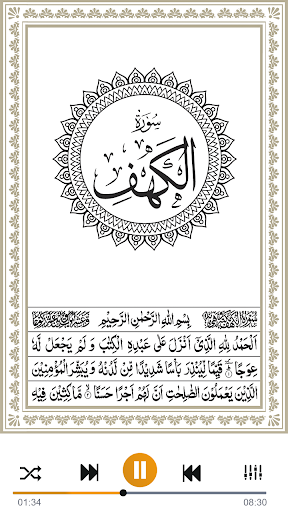 سورة
الكهف
بِسْمِ اللهِ الرَّحْمٰنِ الرَّحِيْمِ
اَلْحَمْدُ لِلّٰهِ الَّذِيْٓ اَنْزَلَ عَلٰى عَبْدِهِ الْكِتٰبَ وَ لَمْ يَجْعَلْ لَّهٗ
عِوَجًا ۜ قَيِّمًا لِّيُنْذِرَ بَاْسًا شَدِيْدًا مِّنْ لَّدُنْهُ وَ يُبَشِّرَ الْمُؤْمِنِيْنَ
الَّذِيْنَ يَعْمَلُوْنَ الصّٰلِحٰتِ اَنَّ لَهُمْ اَجْرًا حَسَنًا ۙ مَّاكِثِيْنَ فِيْهِ
01:34 08:30